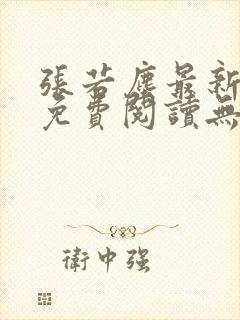 張若塵最新
免費閱讀無
衛中強